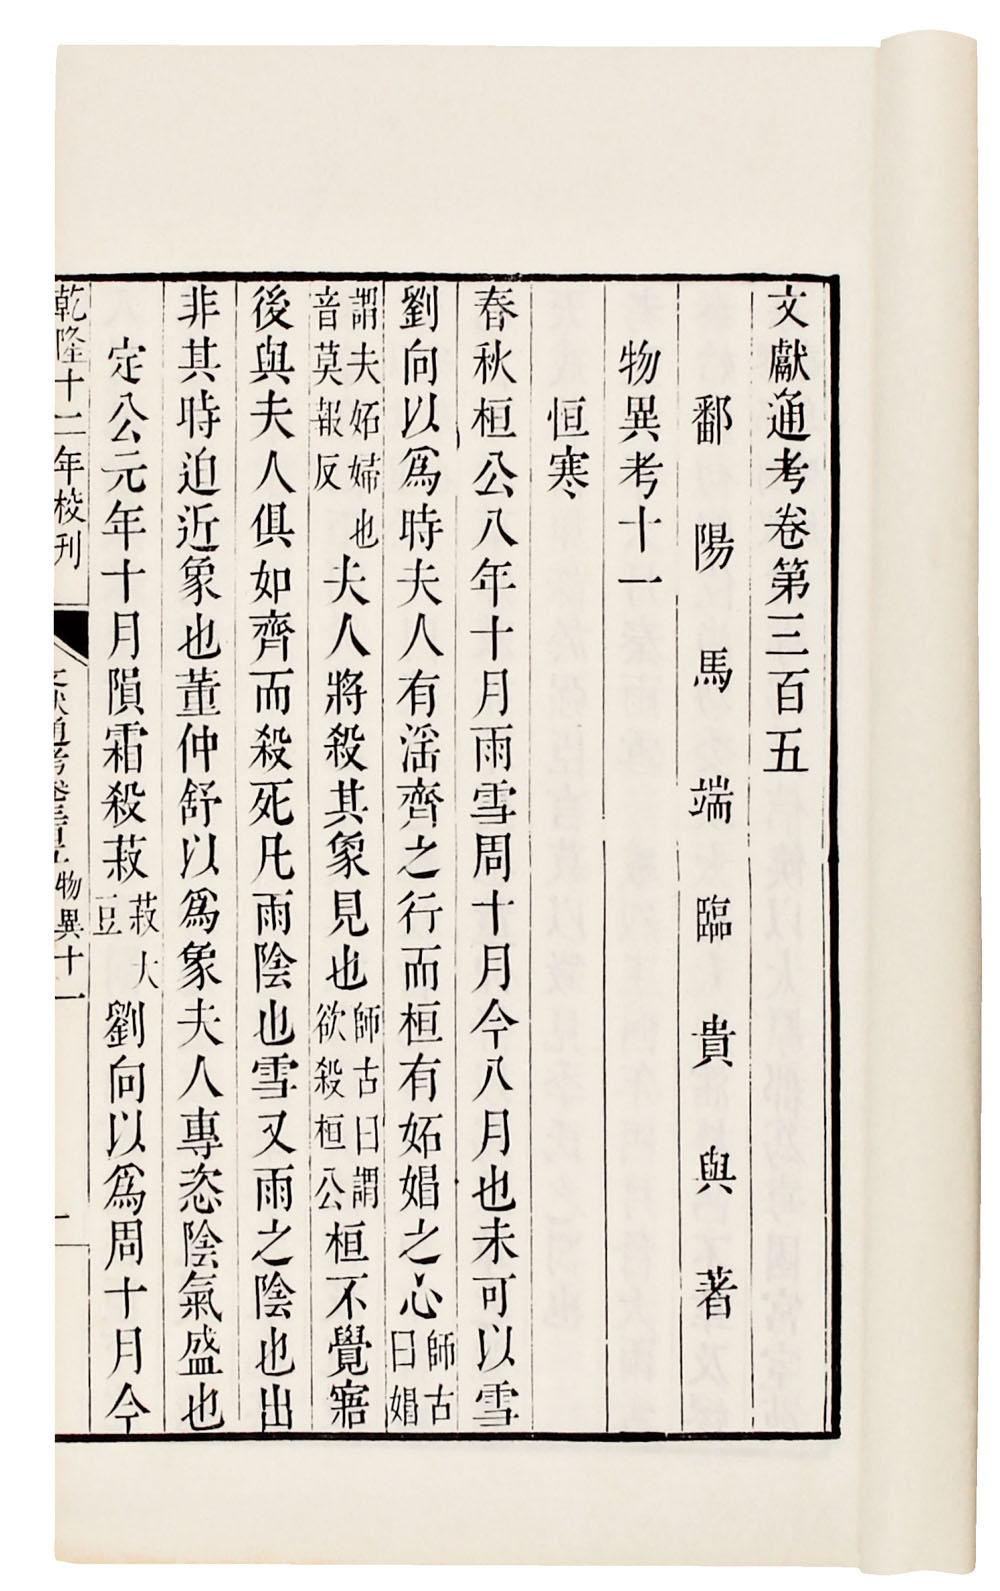 文獻通考卷第三百五
鄱陽馬端臨貴與著
物異考十一
恒寒
春秋桓公八年十月雨雪周十月今八月也未可以雪
劉向以爲時夫人有淫齊之行而桓有妬媢之心師古曰媢
謂夫妬婦也音莫報反夫人將殺其象見也師古曰謂欲殺桓公桓不覺寤
後與夫人俱如齊而殺死凡雨陰也雪又雨之陰也出
非其時迫近象也董仲舒以爲象夫人專恣陰氣盛也
定公元年十月隕霜殺菽菽大豆劉向以爲周十月今
乾隆十二年校刊
文獻通考卷三百五 物異十一
一